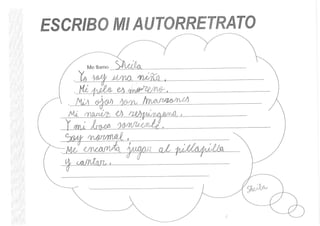 ESCRIBO MI AUTORRETRATO
Me llamo Sheila
Yo soy una niña.
Mi pelo es moreno.
Mis ojos son marrones
Mi nariz es respingona.
Y mi boca sonriente.
Soy normal.
Me encanta jugar al pillapilla
y cantar.
Sheila